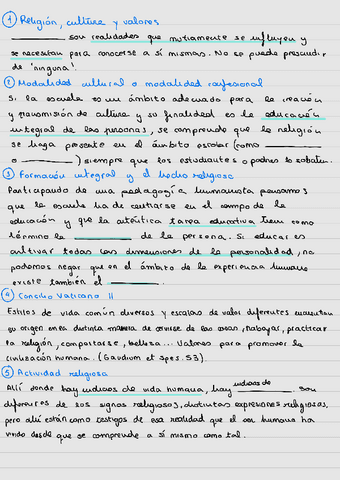 ① Religión, cultura y valores
________ son realidades que mutuamente se influyen y
se necesitan para conocerse a sí mismas. No se puede prescindir
de 'ninguna'.
② Modalidad cultural o modalidad confesional
Si la escuela es un ámbito adecuado para la creación
y transmisión de cultura y su finalidad es la educación
integral de las personas, se comprende que la religión
se haga presente en el ámbito escolar (como ________
o ________) siempre que los estudiantes o padres lo soliciten.
③ Formación integral y el hecho religioso
Participando de una pedagogía humanista pensamos
que la escuela ha de centrarse en el campo de la
educación y que la auténtica tarea educativa tiene como
término la ________ de la persona. Si educar es
cultivar todas las dimensiones de la personalidad, no
podemos negar que en el ámbito de la experiencia humana
existe también el ________.
④ Concilio Vaticano II
Estilos de vida común diversos y escalas de valor diferentes encuentran
su origen en la distinta manera de servirse de las cosas, trabajar, practicar
la religión, comportarse, belleza... Valores para promover la
civilización humana. (Gaudium et Spes. 53).
⑤ Actividad religiosa
Allí donde hay indicios de vida humana, hay indicios de ________. Son
diferentes de los signos religiosos, distintas expresiones religiosas,
pero ahí están como testigos de esa realidad que el ser humano ha
vivido desde que se comprende a sí mismo como tal.